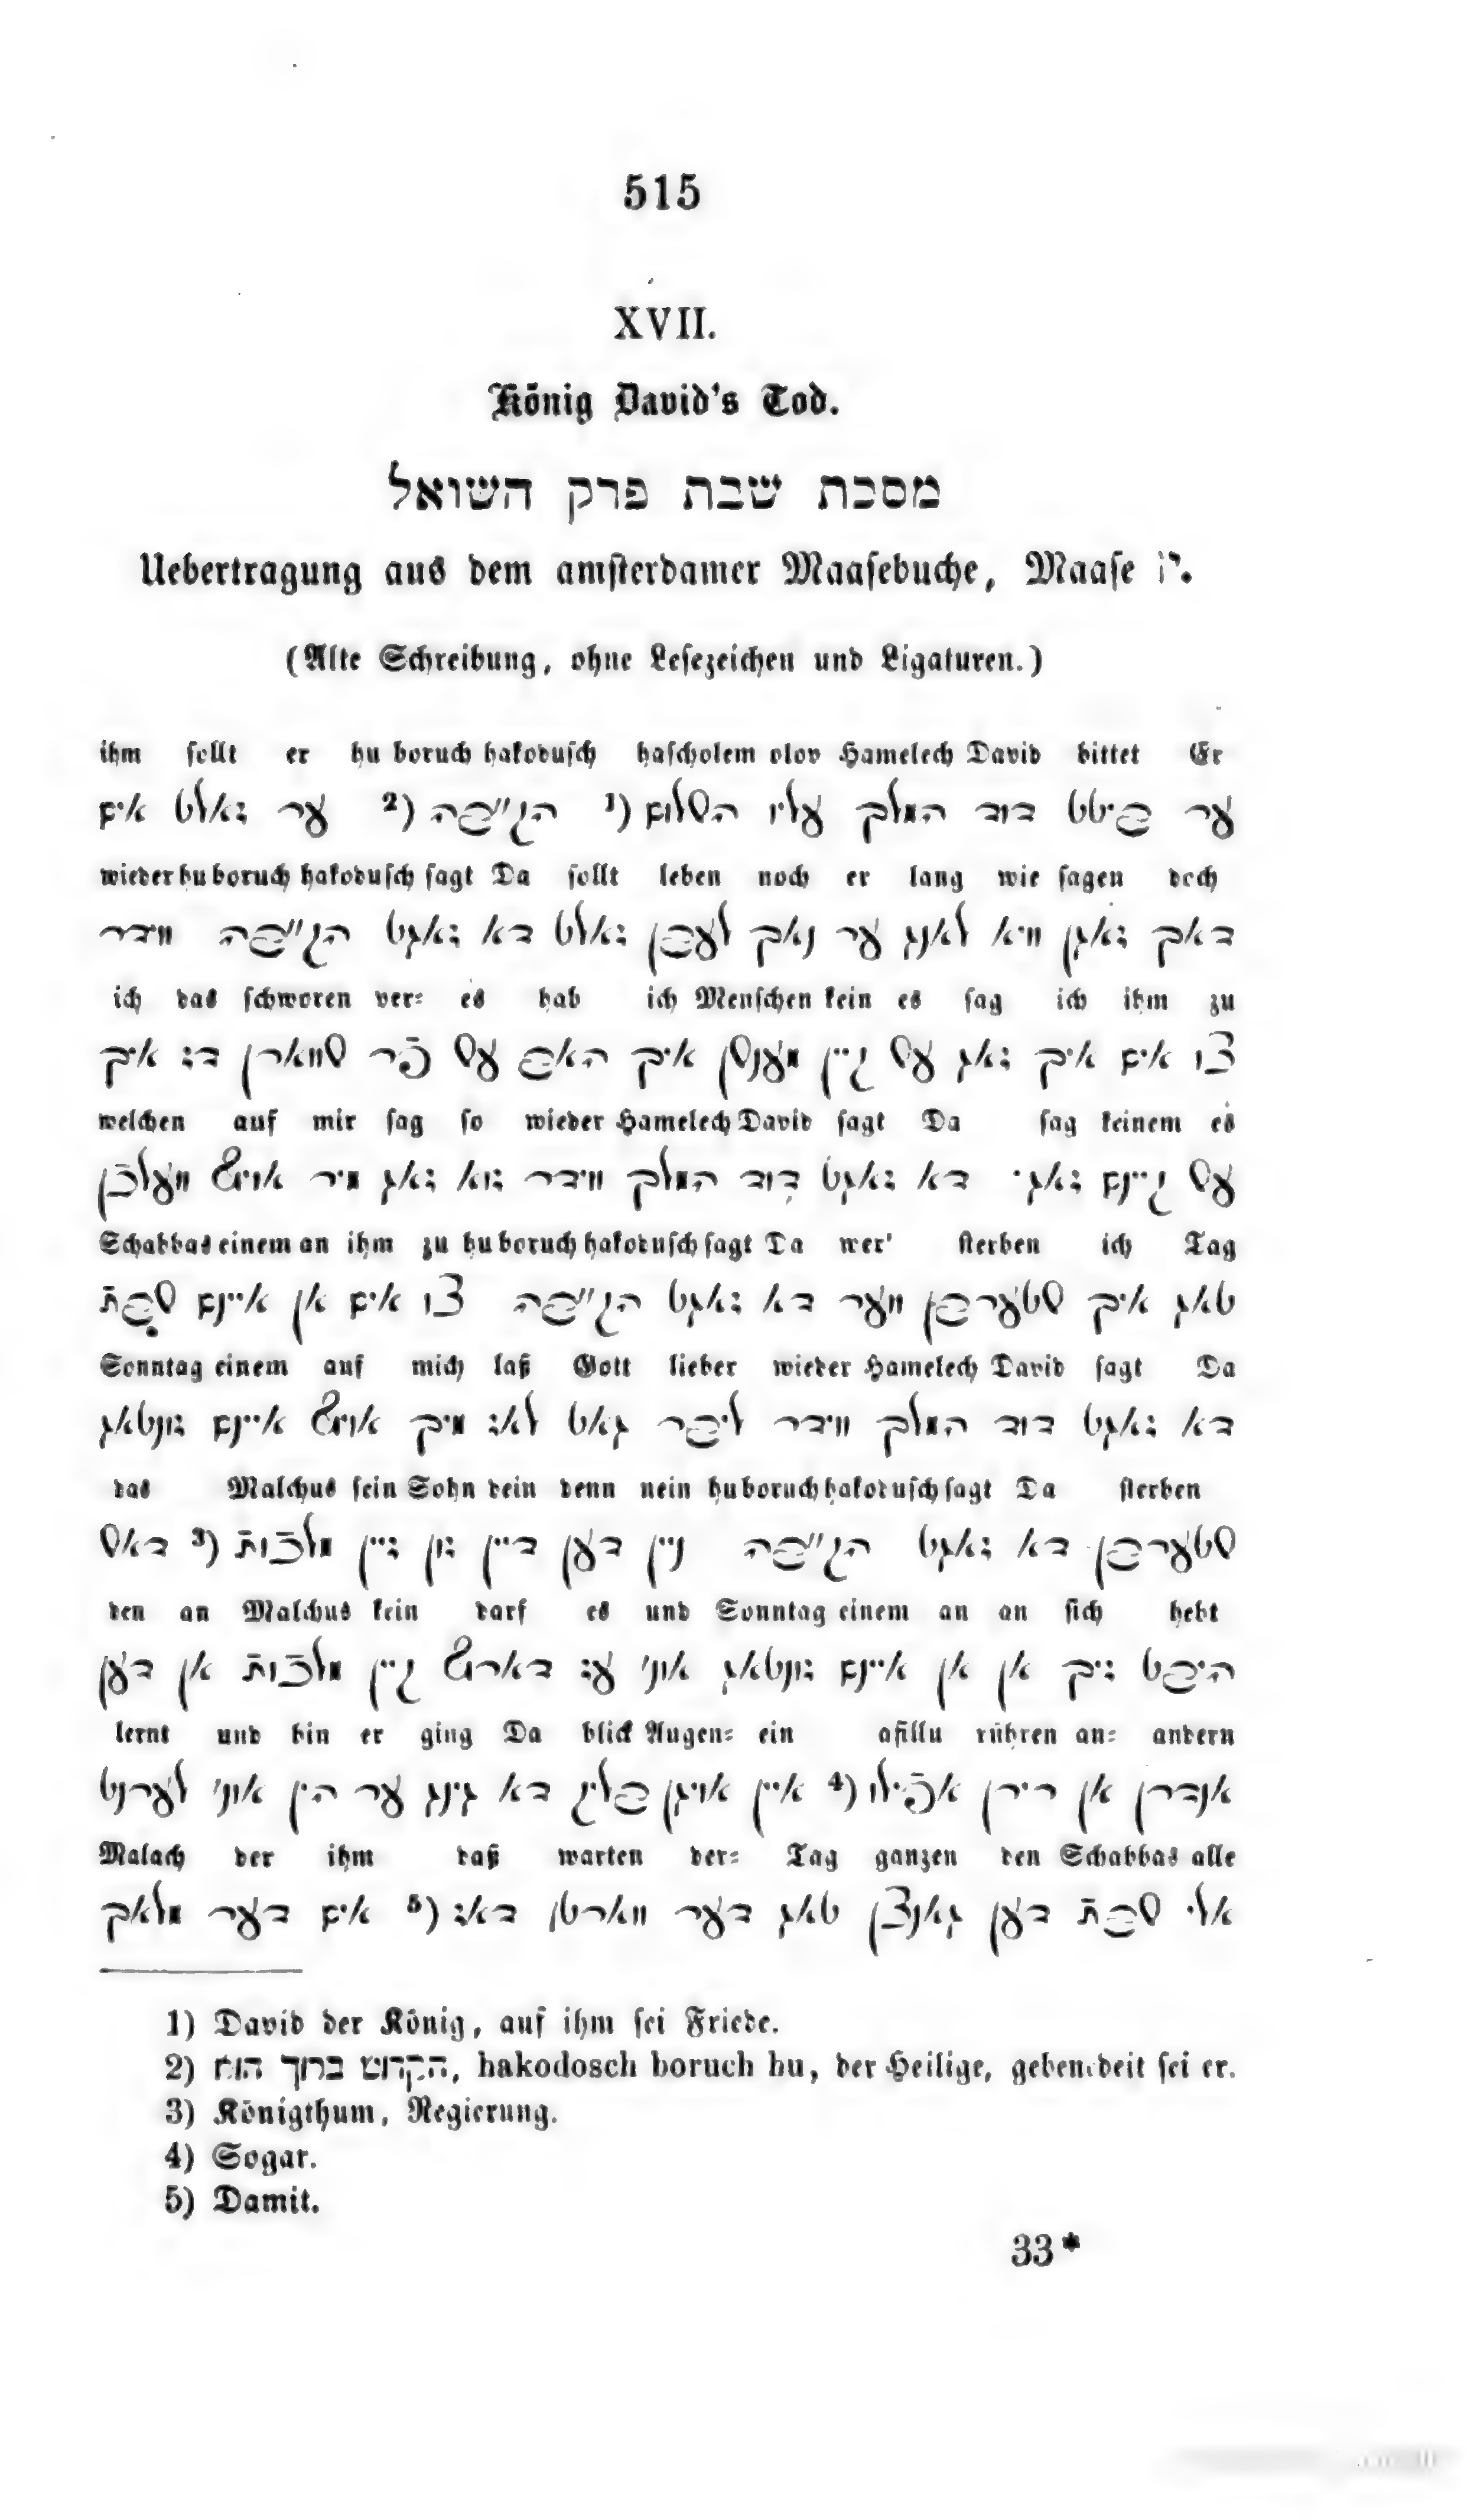 515
XVII.
König David's Tod.
מסכת שבת פרק השואל
Uebertragung aus dem amſterdamer Maaſebuche, Maaſe י׳.
(Alte Schreibung, ohne Leſezeichen und Ligaturen.)
ihm ſollt er hu boruch hakoduſch haſcholem olov Hamelech David bittet Er
ער ביטט דוד המלך עליו השלום (1 הק״בה (2 ער זאלט אים
wieder hu boruch hakoduſch ſagt Da ſollt leben noch er lang wie ſagen doch
דאך זאגן וויא לאנג ער נאך לעבן זאלט דא זאגט הק״בה ווידר
ich das ſchworen ver⸗ es hab ich Menſchen kein es ſag ich ihm zu
צו אים איך זאג עש קיין מענשן איך האב עש פֿר שווארן דז איך
welchen auf mir ſag ſo wieder Hamelech David ſagt Da ſag keinem es
עש קיינם זאגי דא זאגט דוד המלך ווידר זוא זאג מיר אויף וועלכֿן
Schabbas einem an ihm zu hu boruch hakoduſch ſagt Da wer' ſterben ich Tag
טאג איך שטערבן ווער דא זאגט הק״בה צו אים אן איינם שבּתֿ
Sonntag einem auf mich laß Gott lieber wieder Hamelech David ſagt Da
דא זאגט דוד המלך ווידר ליבר גאט לאז מיך אויף איינם זונטאג
das Malchus ſein Sohn dein denn nein hu boruch hakoduſch ſagt Da ſterben
שטערבן דא זאגט הק״בה ניין דען דיין זון זיין מלכֿותֿ (3 דאש
den an Malchus kein darf es und Sonntag einem an an ſich hebt
היבט זיך אן אן איינם זונטאג אונ׳ עז דארף קיין מלכֿותֿ אן דען
lernt und hin er ging Da blick Augen⸗ ein afillu rühren an⸗ andern
אנדרן אן רירן אפֿילו (4 איין אויגן בליק דא גינג ער הין אונ׳ לערנט
Malach der ihm daß warten der⸗ Tag ganzen den Schabbas alle
אלי שבתֿ דען גאנצן טאג דער ווארטן דאז (5 אים דער מלאך
1) David der König, auf ihm ſei Friede.
2) הקדוש ברוך הוא, hakodosch boruch hu, der Heilige, gebenedeit ſei er.
3) Königthum, Regierung.
4) Sogar.
5) Damit.
33*